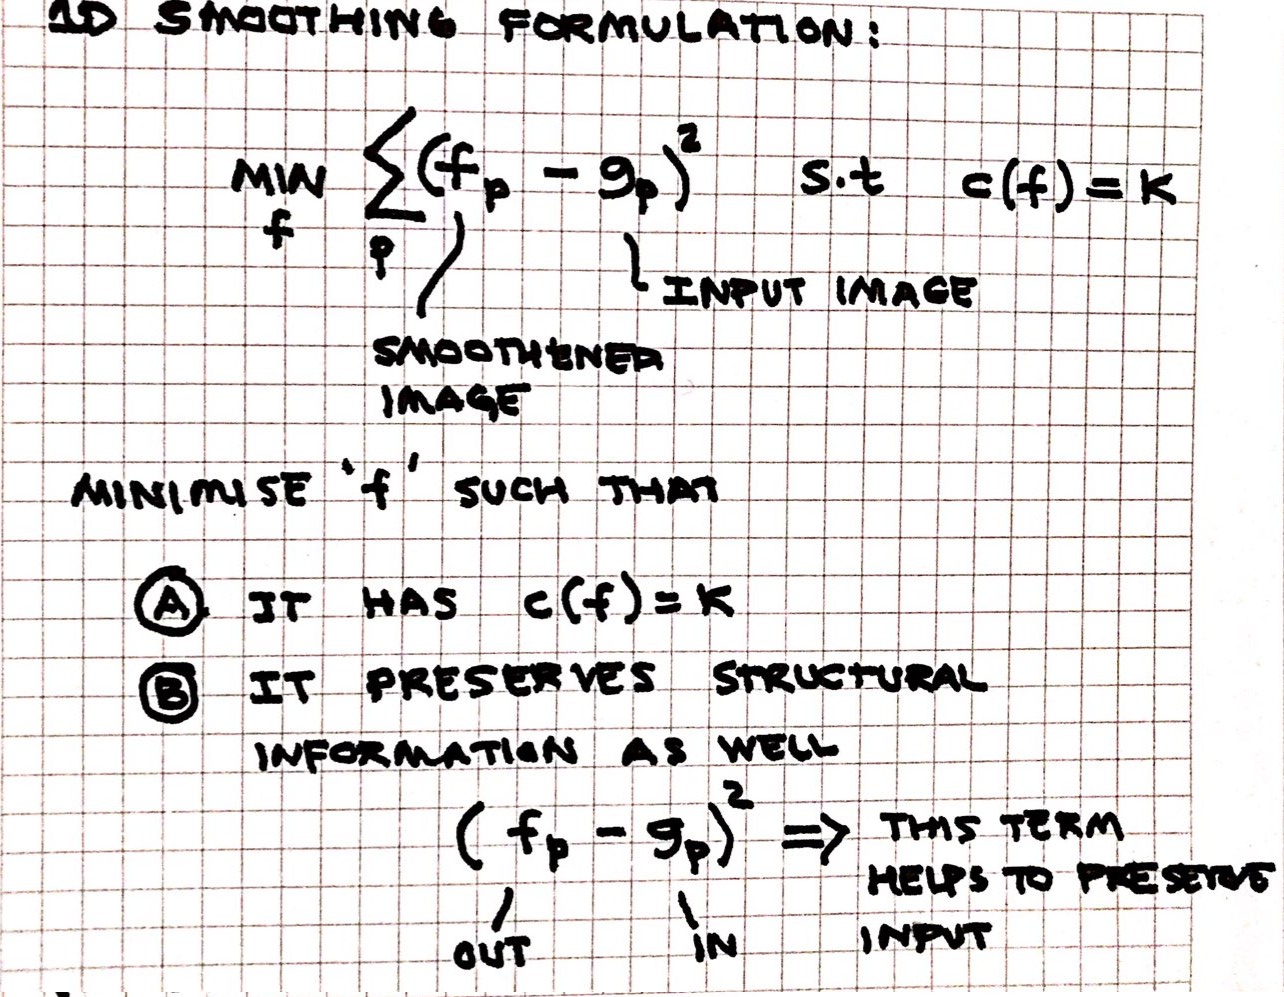 1D SMOOTHING FORMULATION:
MIN f ∑ p (f_p - g_p)² s.t c(f) = K
INPUT IMAGE
SMOOTHENED
IMAGE
MINIMISE 'f' SUCH THAT
(A) IT HAS c(f) = K
(B) IT PRESERVES STRUCTURAL
INFORMATION AS WELL
(f_p - g_p)² => THIS TERM
HELPS TO PRESERVE
OUT IN INPUT